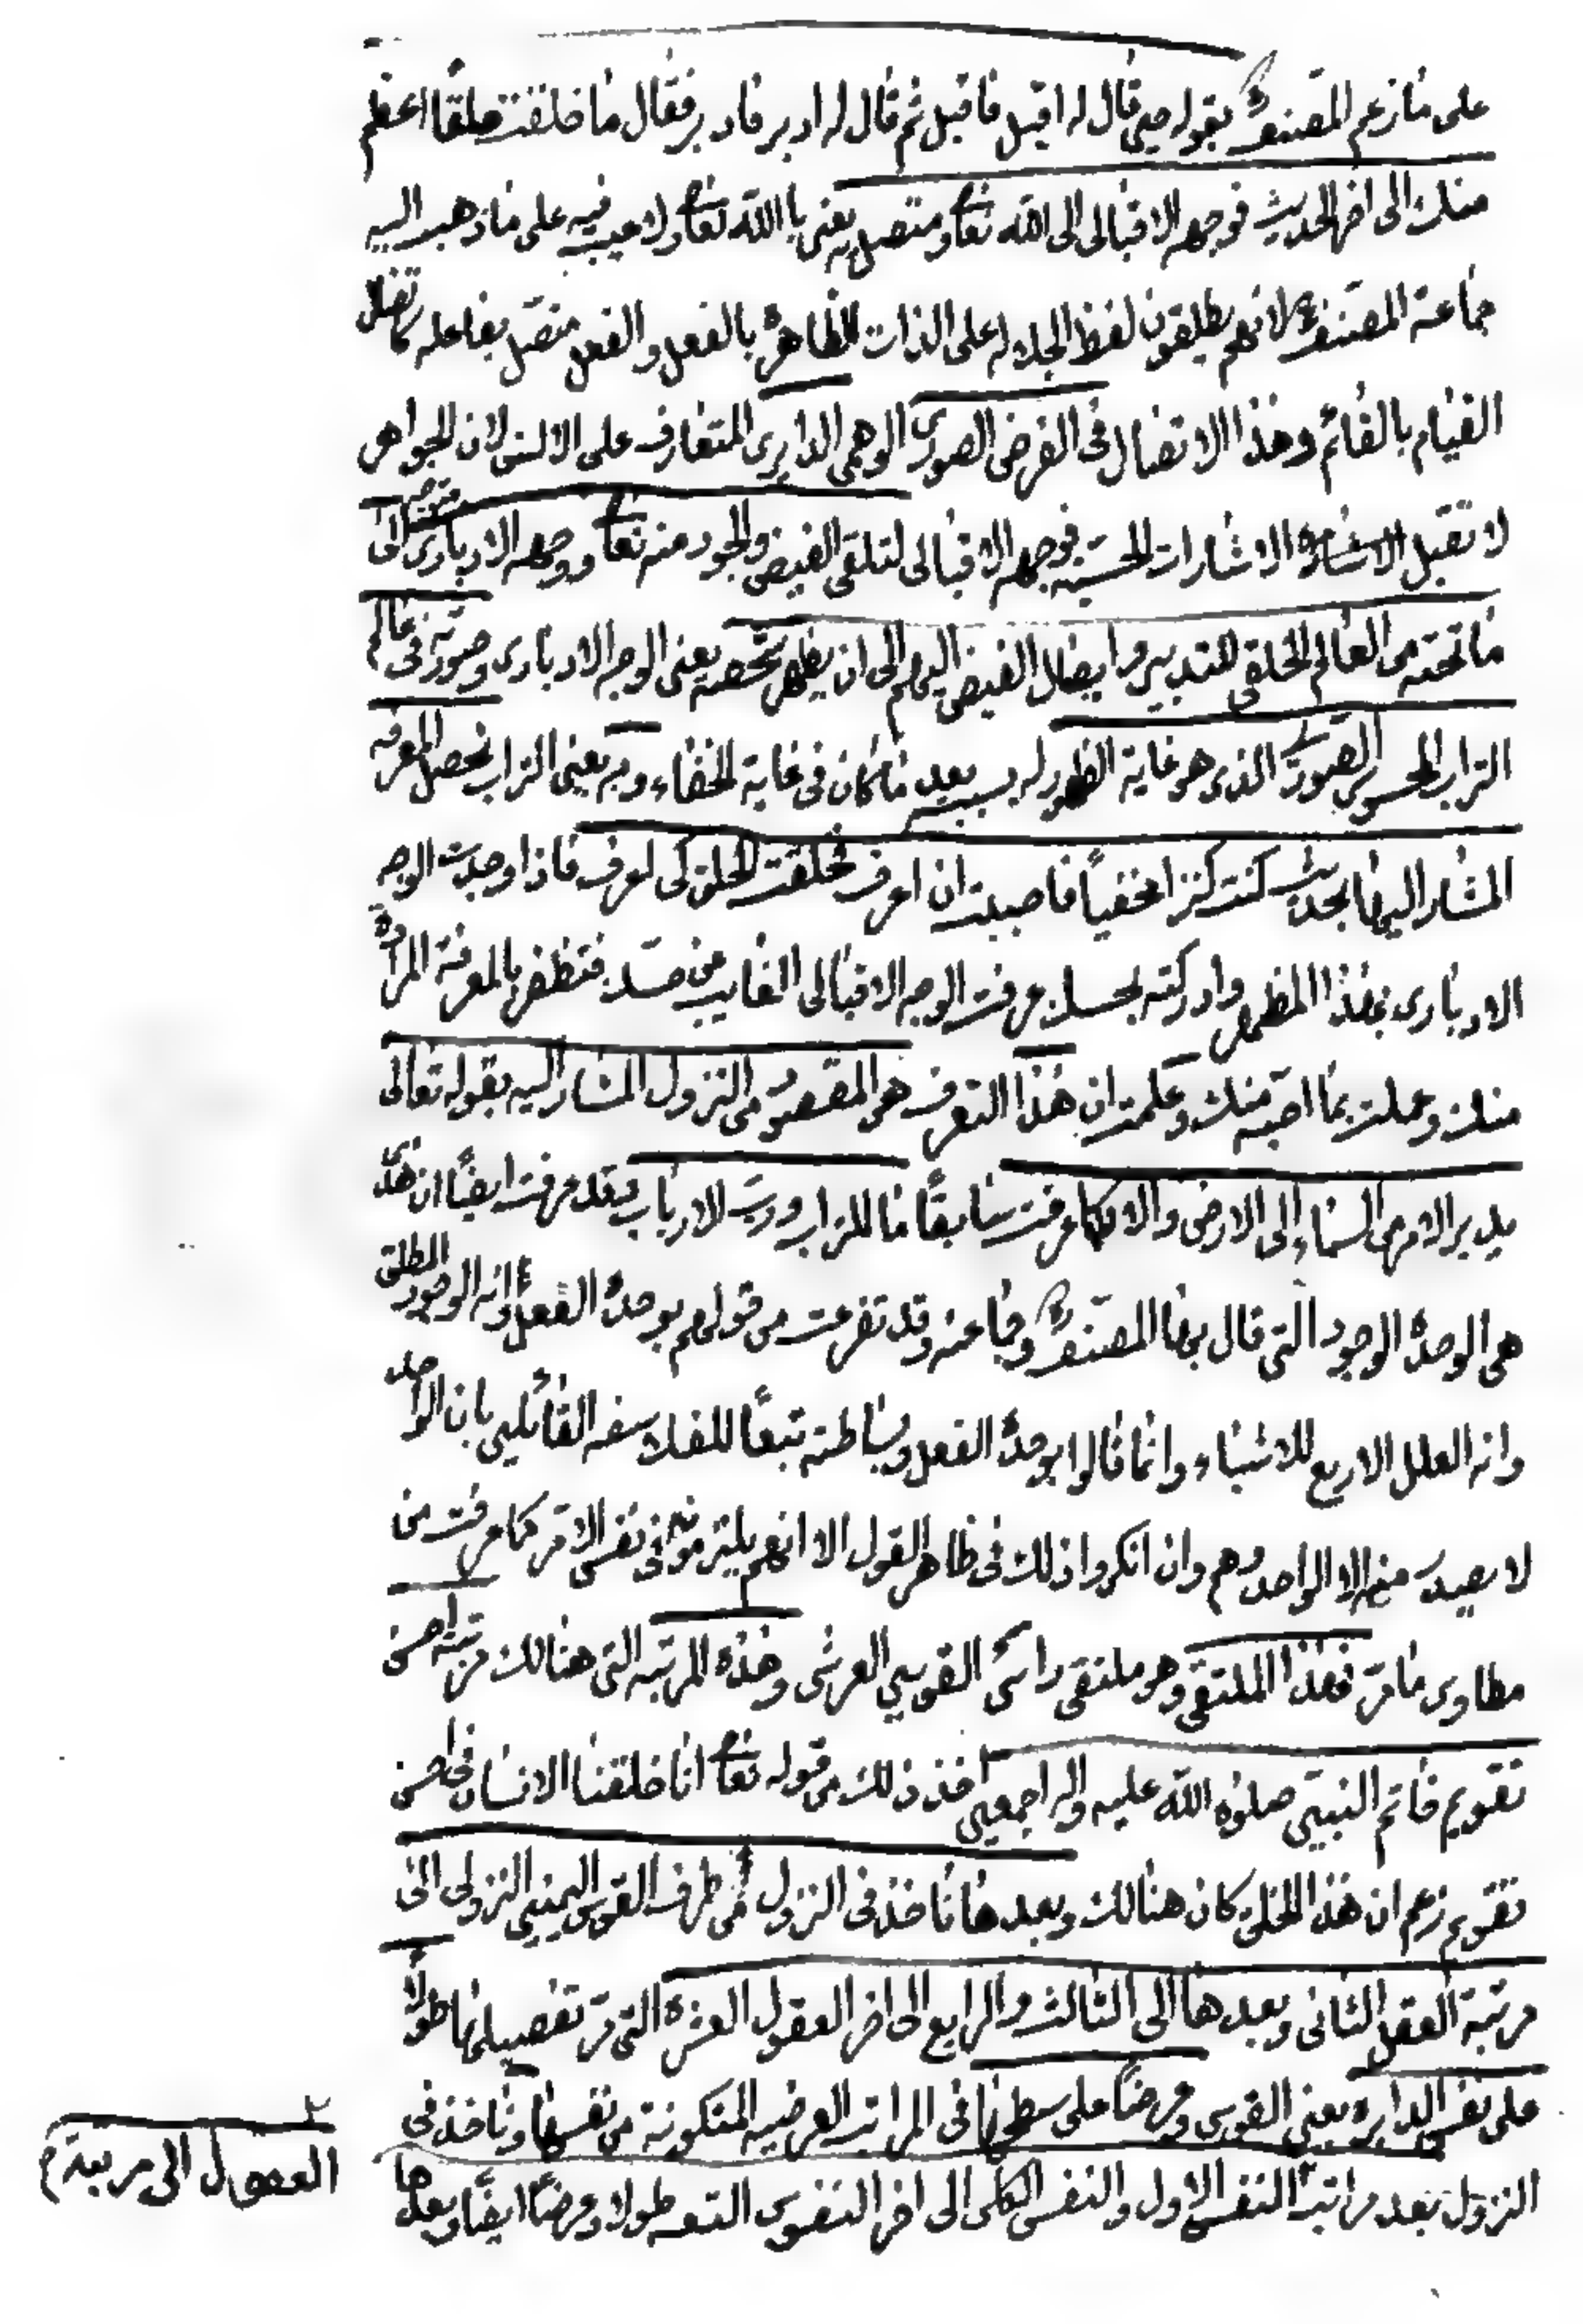 على مازعم المصنف بقوله حين قال له اقبل فاقبل ثم قال له ادبر فادبر فقال ما خلقت خلقًا اعظم
منك الى اخر الحديث فوجهه الاقبالى الى الله تعا ومتصل به يعنى بالله تعا ولا عيب فيه على ماذهب اليه
جماعة المصنف لانهم يطلقون لفظ الجلاله على الذات الظاهرة بالفعل والفعل متصل بفاعله كاتصال
القيام بالقائم وهذا الاتصال فى الفرض الصورى الوهمى الدايرى المتعارف على الالسن لان الجواهر
لا تقبل الاشارة الاشارات الحسيه فوجهه الاقبالى لتلقى الفيض والجود منه تعا ووجهه الادبارى متصل الى
ما تحته من العالم الخلقى للتدبير وايصال الفيض اليهم الى ان يظهر شخصه يعنى الوجه الادبارى وصورته فى عالم
التراب المحسوس الصورى الذى هو غاية الظهور له بسببه بعد ما كان فى غاية الخفاء وبه يعنى التراب تحصل المعرفه
المشار اليها بحديث كنت كنزا مخفياً فاحببت ان اعرف فخلقت الخلق لكى اعرف فاذا وجدت الوجه
الادبارى بهذا المظهر وادركته بحسك عرفت الوجه الاقبالى الغايب عن حسك فتظفر بالمعرفة المرادة
منك وعملت بما احبه منك وعلمت ان هذا التعرف هو المقصود من النزول المشار اليه بقوله تعالى
يدبر الامر من السماء الى الارض والا فكما عرفت سابقًا ما للتراب ورب الارباب فقد عرفت ايضًا ان هذى
هى الوحدة الوجود التى قال بها المصنف وجماعته وقد تفرعت من قولهم بوحدة الفعل وانه الوجود المطلق
وانه العلل الاربع للاشياء وانما قالوا بوحدة الفعل وبساطته تبعًا للفلاسفه القائلين بان الواحد
لا يصدر منه الا الواحد وهم وان انكروا ذلك فى ظاهر القول الا انهم يلتزمونه فى نفس الامر كما عرفت من
مطاوى ما مر فهذا الملتقى وهو ملتقى راسى القوسين العرشى وهذه المرتبه التى هنالك مرتبه احسن
تقويم خاتم النبيين صلوة الله عليه واله اجمعين اخذ ذلك من قوله تعا انا خلقنا الانسان فى احسن
تقويم زعم ان هذا الخلق كان هنالك وبعدها ناخذ فى النزول من طرف القوس اليمين النزولى الى
مرتبة العقل الثانى وبعدها الى الثالث والرابع الى اخر العقول العشرة التى مر تفصيلها طولًا
على نفس الدايره يعنى القوس وعرضًا على سطحها فى المراتب العرضيه المتكونة من نفسها وناخذ فى
النزول بعد مراتب النفس الاول والنفس الكلى الى اخر النفوس التسعه طولا وعرضًا ايضًا وبعدها
العقول الى مر بعده م